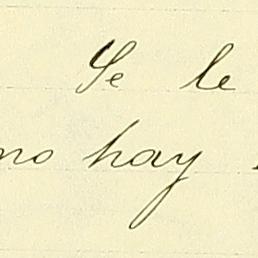 Se le
no hay